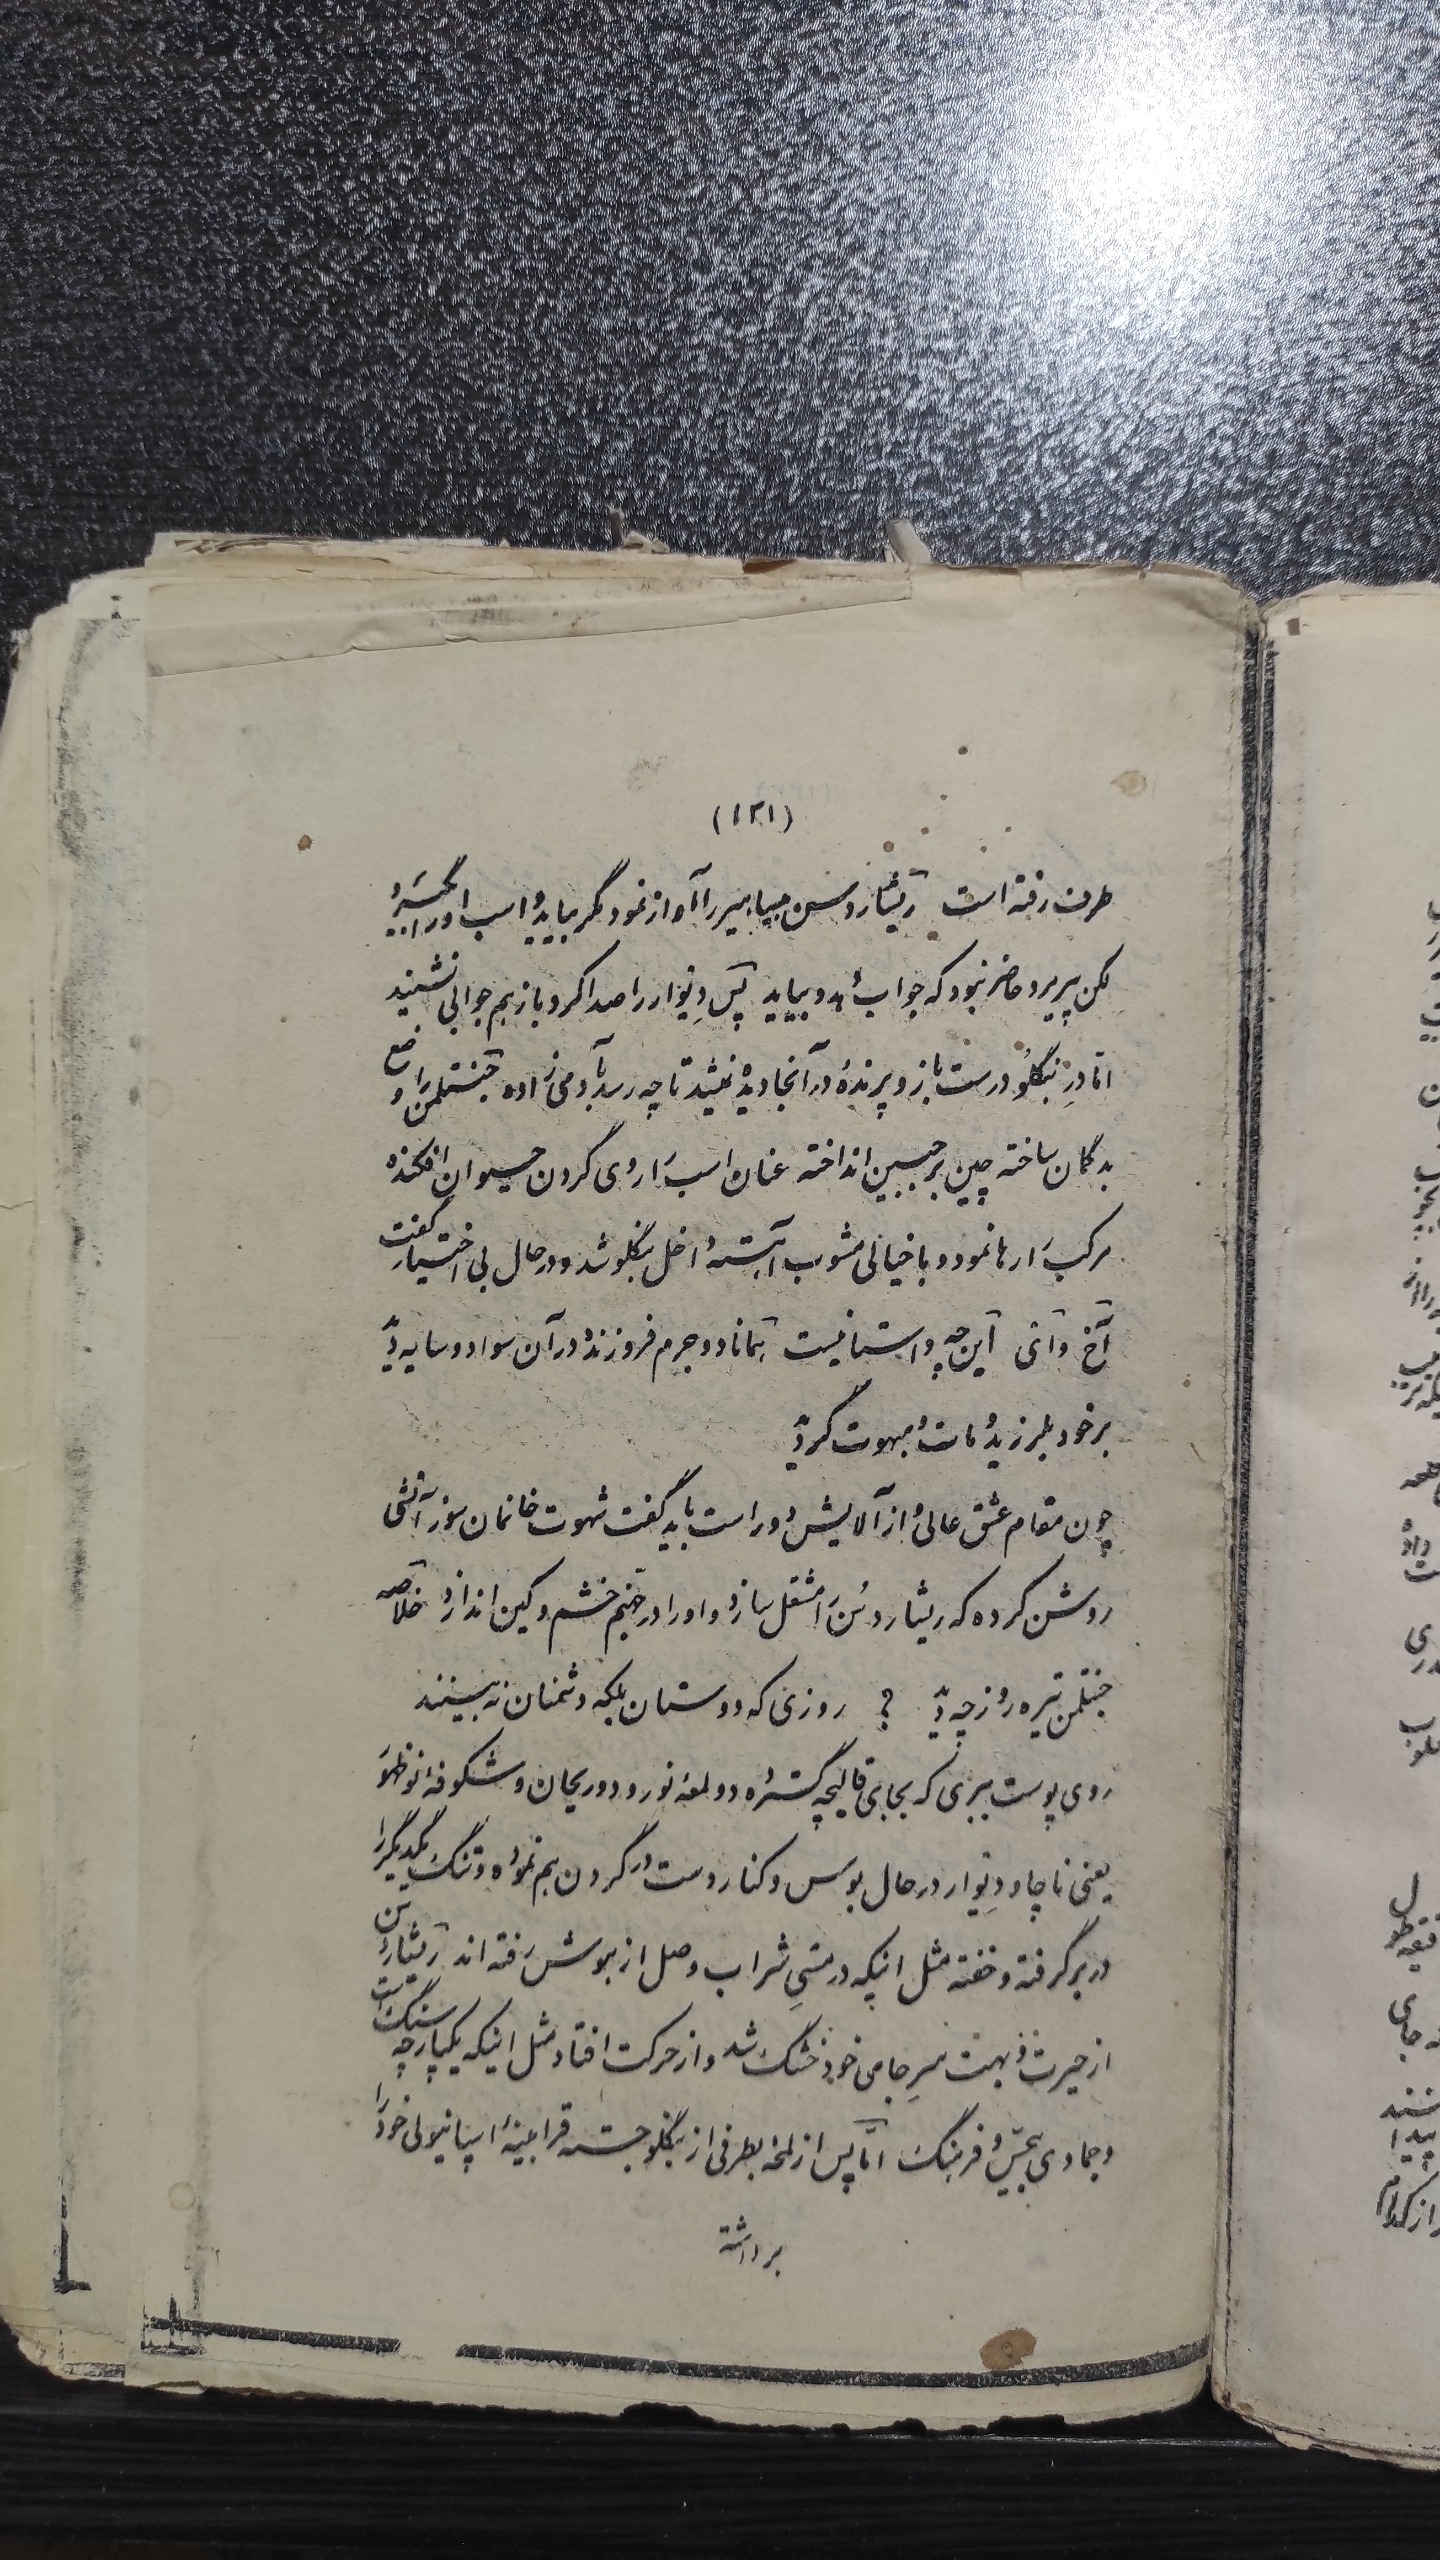 (۱۲۱)
طرف رفته است ریشاردسن میپامیر را آواز نمود مگر بیاید و اسب او را بگیرد
لکن پیر مرد حاضر نبود که جواب دهد و بیاید پس دِنیوار را صدا کرد باز هم جوابی نشنید
امّا درِ بنگلو درست باز و پرندهٔ در آنجا دیده نمیشد تا چه رسد بآدمی زاده جنتلمن را وضع
بد گمان ساخته چین بر جبین انداخته عنان اسب را روی گردن حیوان افکنده
مرکب را رها نمود و با خیالی مشوب آهسته داخل بنگلو شد و در حال بی اختیار گفت
آخ وآی این چه داستانیست همانا دو جرم فروزنده در آن سواد و سایه دید
بر خود بلرزید و مات و مبهوت گردید
چون مقام عشق عالی و از آلایش دور است باید گفت شهوت خانمان سوز آتشی
روشن کرده که ریشاردسُن را مشتعل سازد و او را در جهنم خشم و کین اندازد خلاصه
جنتلمن تیره روز چه دید ؟ روزی که دوستان بلکه دشمنان نه بینند
روی پوست ببری که بجای قالیچه گسترده دو لمعهٔ نور و دو ریحان و شکوفهٔ نو ظهور
یعنی ناچا و دِنیوار در حال بوس و کنار دست در گردن هم نموده و تنگ یکدیگر را
در بر گرفته و خفته مثل اینکه در مستیِ شراب وصل از هوش رفته اند ریشاردسن
از حیرت و بهت سرِ جای خود خشک شد و از حرکت افتاد مثل اینکه یکپارچه سنگ است
و جمادی بیحسّ و فرهنگ امّا پس از لمحه بطرفی از بنگلو جسته قرابینهٔ اسپانیولی خود را
برداشته